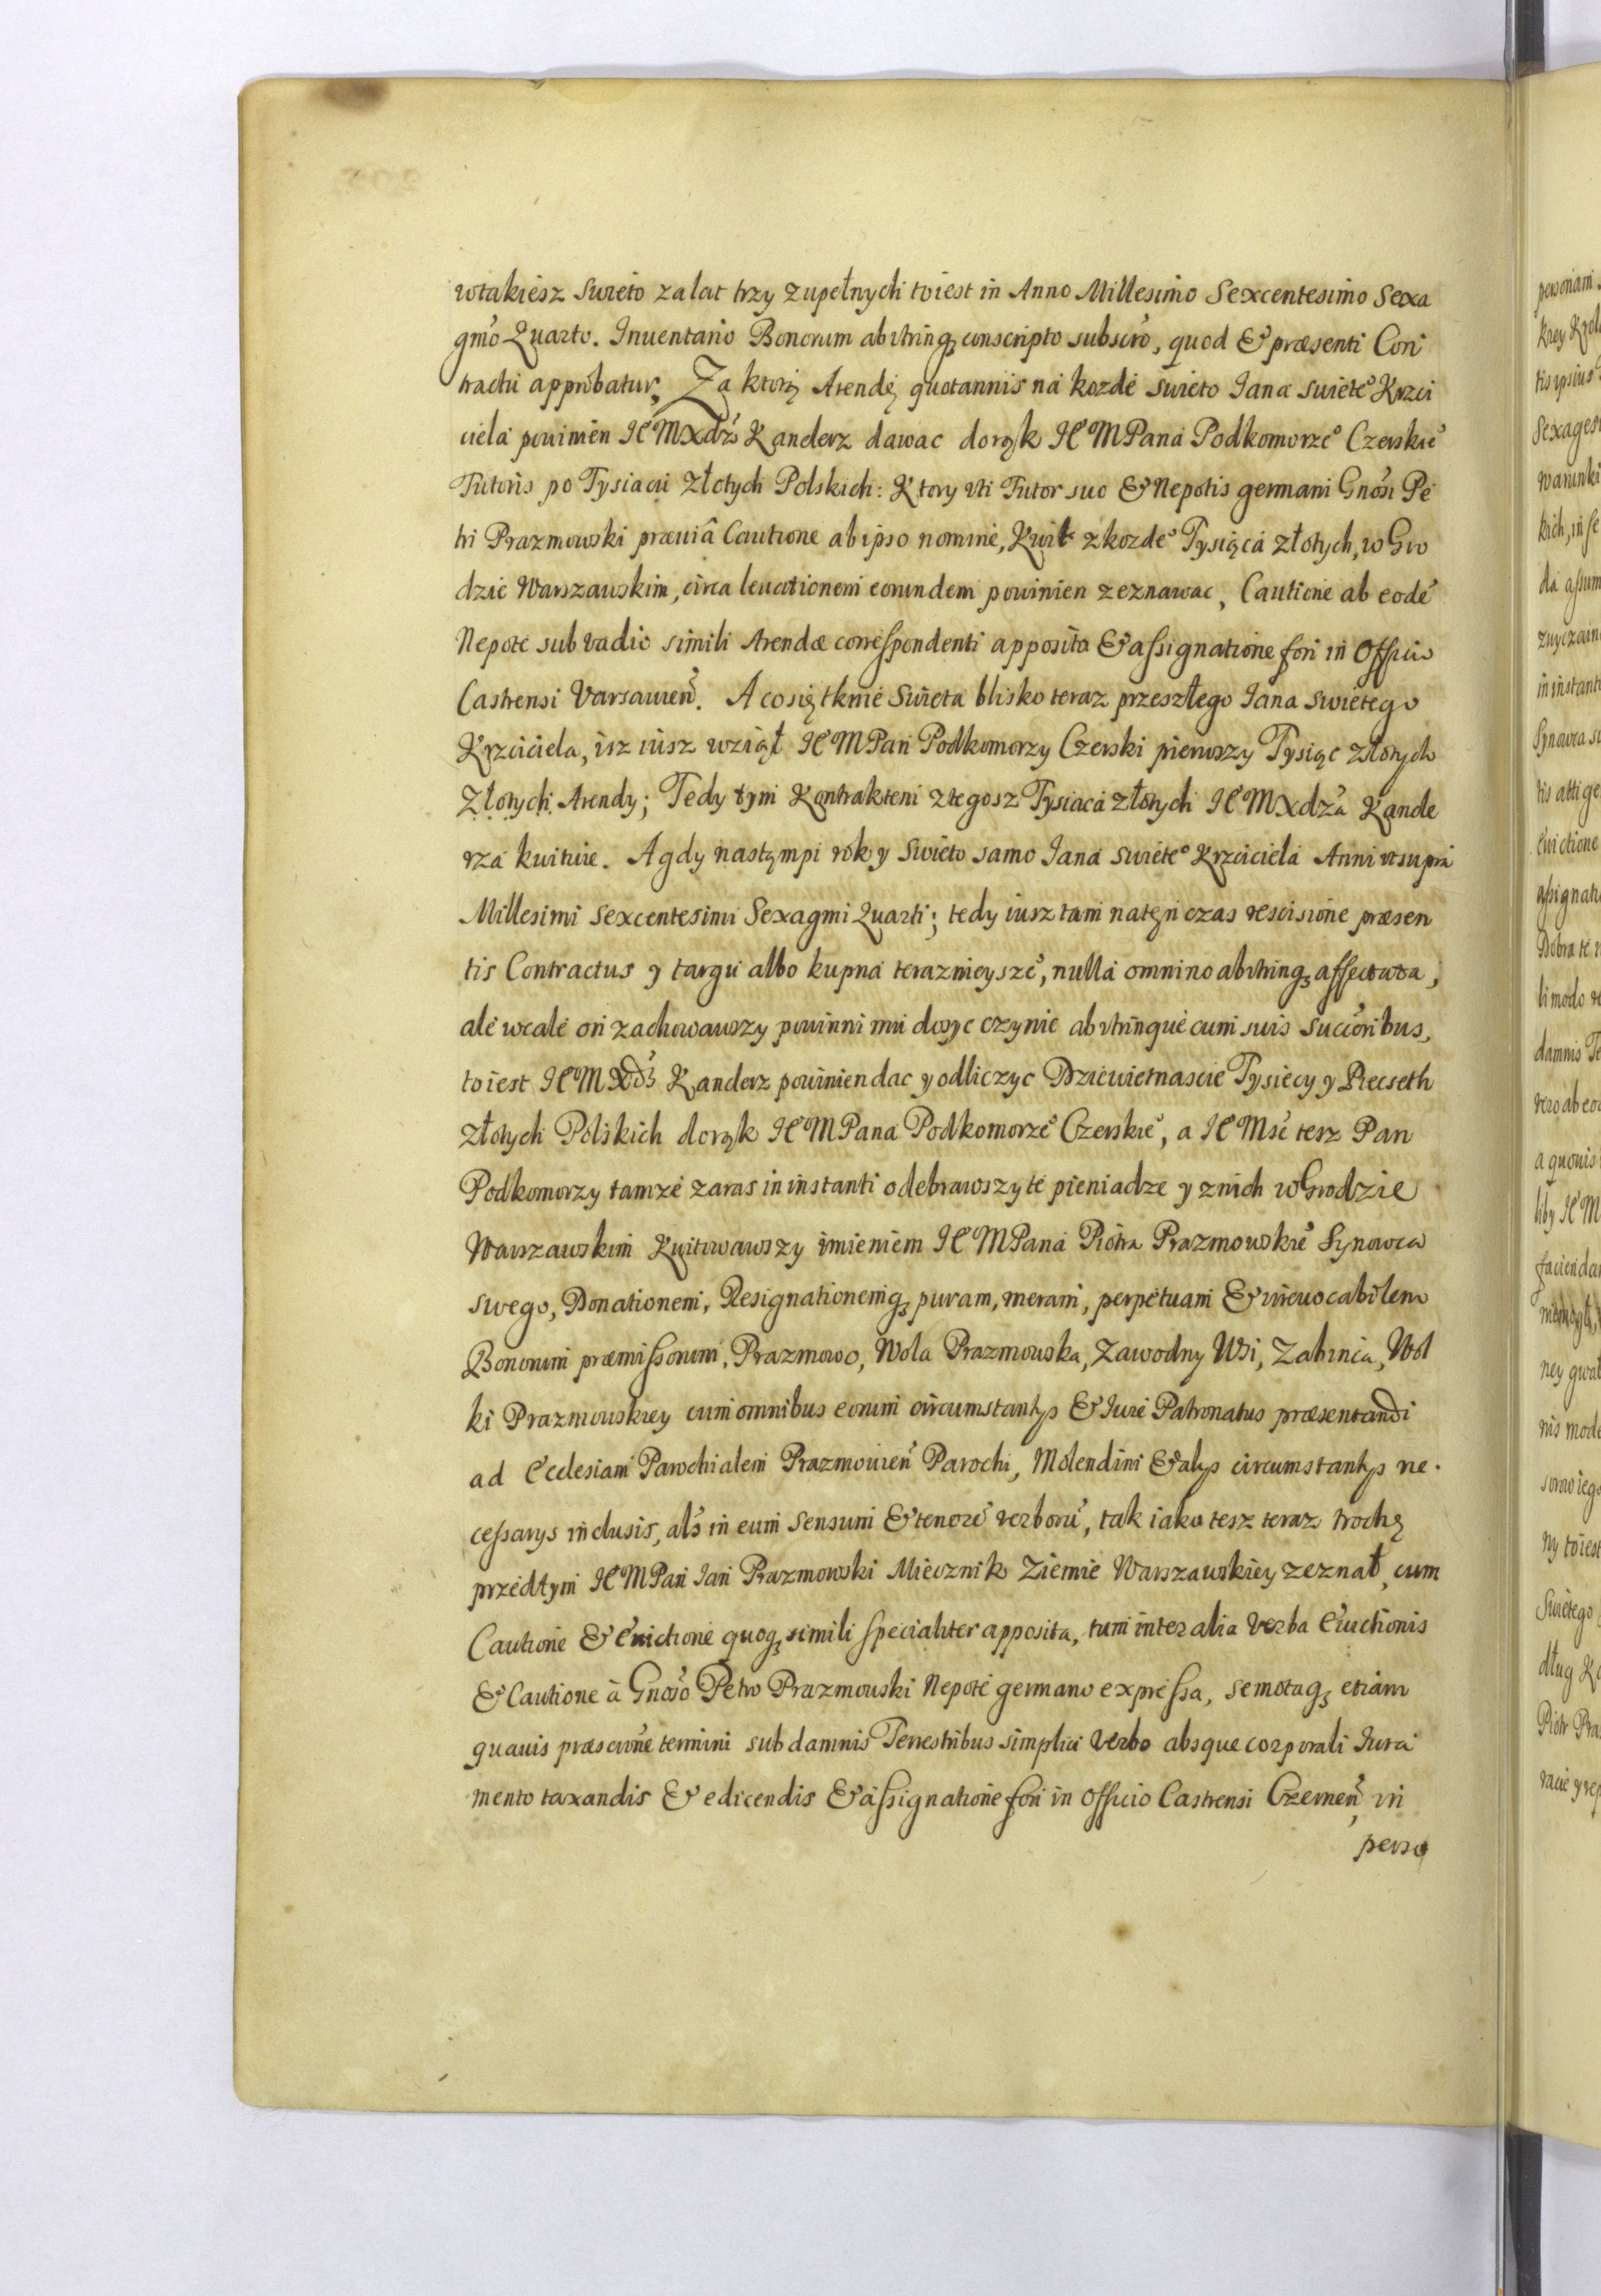 wtakiesz swieto za lat trzy zupełnych to iest in Anno Millesimo Sexcentesimo Sexa
gmõ Quarto. Inuentario Bonorum ab vtrinq; conscripto subscrõ, quod & præsenti Con
tractu approbatur, Za ktorą Arendę quotannis na kozde swieto Iana swiete° Krzci
ciela powinien IE° M Xdz Kanclerz dawac dorąk IE° M Pana Podkomorze° Czerskie°
Tutoris po Tysiacu Złotych Polskich: Ktory vti Tutor suo & Nepotis germani Gnõsi Pe
tri Prazmowski præuiâ Cautione ab ipso nomine, Kwit zkozde° Tysiąca złotych, w Gro
dzie Warszawskim, circa leuationem eorundem powinien zeznawac, Cautione ab eodẽ
Nepote sub vadio simili Arendæ correspondenti apposita & assignatione fori in Officio
Castrensi Varsauieñ. A co się tknie Swieta blisko teraz przeszłego Iana Swietego
Krzciciela, isz iusz wziął IE° M Pan Podkomorzy Czerski pierwszy Tysiąc złotych
Złotych Arendy; Tedy tym Kontraktem ztegosz Tysiaca złotych IE° M Xdza Kancle
rza kwituie. A gdy nastąmpi rok y Swieto samo Iana Swiete° Krzciciela Anni vt supra
Millesimi Sexcentesimi Sexagmi Quarti; tedy iusz tam natęn czas rescisione præsen
tis Contractus y targu albo kupna teraznieysze°, nulla omnino ab vtrinq; affectata,
ale wcale on zachowawszy powinni mu dosyc czynic ab vtrinque cum suis Succõribus,
to iest IE° M Xdz Kanclerz powinien dac y odliczyc Dziewietnascie Tysiecy y Piecseth
złotych Polskich dorąk IE° M Pana Podkomorze° Czerskie°, a IE° Msc tesz Pan
Podkomorzy tamze zaras in instanti odebrawszy te pieniadze y znich w Grodzie
Warszawskim Kwitowawszy imieniem IE° M Pana Piotra Prazmowskie° Synowca
swego, Donationem, Resignationemq; puram, meram, perpetuam & irreuocabilem
Bonorum præmissorum, Prazmowo, Wola Prazmowska, Zawodny Wsi, Zabinca, Wol
ki Prazmowskiey cum omnibus eorum circumstantys & Iure Patronatus præsentandi
ad Ecclesiam Parochialem Prazmouieñ Parochi, Molendini & alys circumstantys ne
cessarys inclusis, als in eum Sensum & tenorẽ verborũ, tak iako tesz teraz trochę
przedtym IE° M Pan Ian Prazmowski Miecznik Ziemie Warszawskiey zeznał, cum
Cautione & Euictione quoq; simili specialiter apposita, tum inter alia verba Euictionis
& Cautione à Gnõso Petro Prazmouski Nepote germano expressa, semotaq; etiam
quauis præscriõne termini sub damnis Terrestribus simplici verbo absque corporali Iura
mento taxandis & edicendis & assignatione fori in Officio Castrensi Czerneñ, in
perso